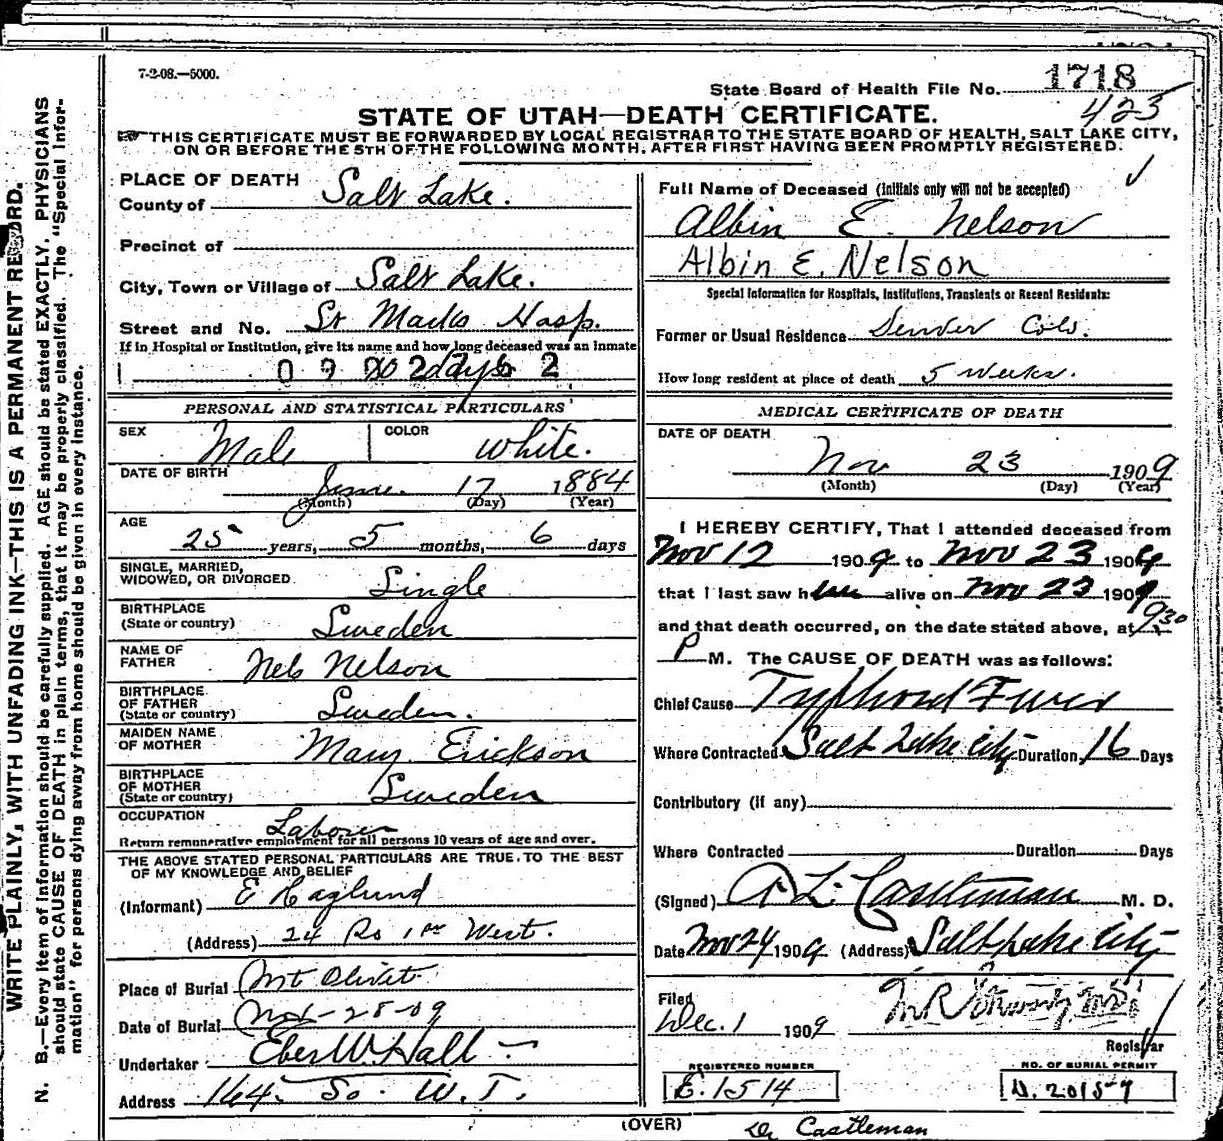 7-2-08.—5000.
State Board of Health File No. 1718
423
STATE OF UTAH—DEATH CERTIFICATE.
THIS CERTIFICATE MUST BE FORWARDED BY LOCAL REGISTRAR TO THE STATE BOARD OF HEALTH, SALT LAKE CITY,
ON OR BEFORE THE 5TH OF THE FOLLOWING MONTH, AFTER FIRST HAVING BEEN PROMPTLY REGISTERED.
WRITE PLAINLY, WITH UNFADING INK—THIS IS A PERMANENT RECORD.
N. B.—Every item of information should be carefully supplied. AGE should be stated EXACTLY. PHYSICIANS
should state CAUSE OF DEATH in plain terms, that it may be properly classified. The "Special Infor-
mation" for persons dying away from home should be given in every instance.
PLACE OF DEATH
County of Salt Lake.
Precinct of
City, Town or Village of Salt Lake.
Street and No. St Marks Hosp.
If in Hospital or Institution, give its name and how long deceased was an inmate
2 days
PERSONAL AND STATISTICAL PARTICULARS
SEX Male COLOR White.
DATE OF BIRTH June 17 1884
(Month) (Day) (Year)
AGE
25 years, 5 months, 6 days
SINGLE, MARRIED,
WIDOWED, OR DIVORCED Single
BIRTHPLACE
(State or country) Sweden
NAME OF
FATHER Nels Nelson
BIRTHPLACE
OF FATHER
(State or country) Sweden.
MAIDEN NAME
OF MOTHER Mary Erickson
BIRTHPLACE
OF MOTHER
(State or country) Sweden
OCCUPATION
Laborer
Return remunerative employment for all persons 10 years of age and over.
THE ABOVE STATED PERSONAL PARTICULARS ARE TRUE TO THE BEST
OF MY KNOWLEDGE AND BELIEF
(Informant) E Haglund
(Address) 24 So 1st West.
Place of Burial Mt Olivet
Date of Burial Nov-28-09
Undertaker Eber W. Hall
Address 164 So. W. T.
Full Name of Deceased (Initials only will not be accepted)
Albin E. Nelson
Albin E. Nelson
Special Information for Hospitals, Institutions, Transients or Recent Residents:
Former or Usual Residence Denver Colo.
How long resident at place of death 5 weeks.
MEDICAL CERTIFICATE OF DEATH
DATE OF DEATH
Nov 23 1909
(Month) (Day) (Year)
I HEREBY CERTIFY, That I attended deceased from
Nov 12 1909 to Nov 23 1909
that I last saw him alive on Nov 23 1909
and that death occurred, on the date stated above, at 9 30
P M. The CAUSE OF DEATH was as follows:
Chief Cause Typhoid Fever
Where Contracted Salt Lake City Duration 16 Days
Contributory (if any)
Where Contracted Duration Days
(Signed) A L. Castleman M. D.
Date Nov 24 1909 (Address) Salt Lake City
Filed
Dec. 1 1909
Registrar
REGISTERED NUMBER
E. 1514
NO. OF BURIAL PERMIT
(OVER)
Dr Castleman